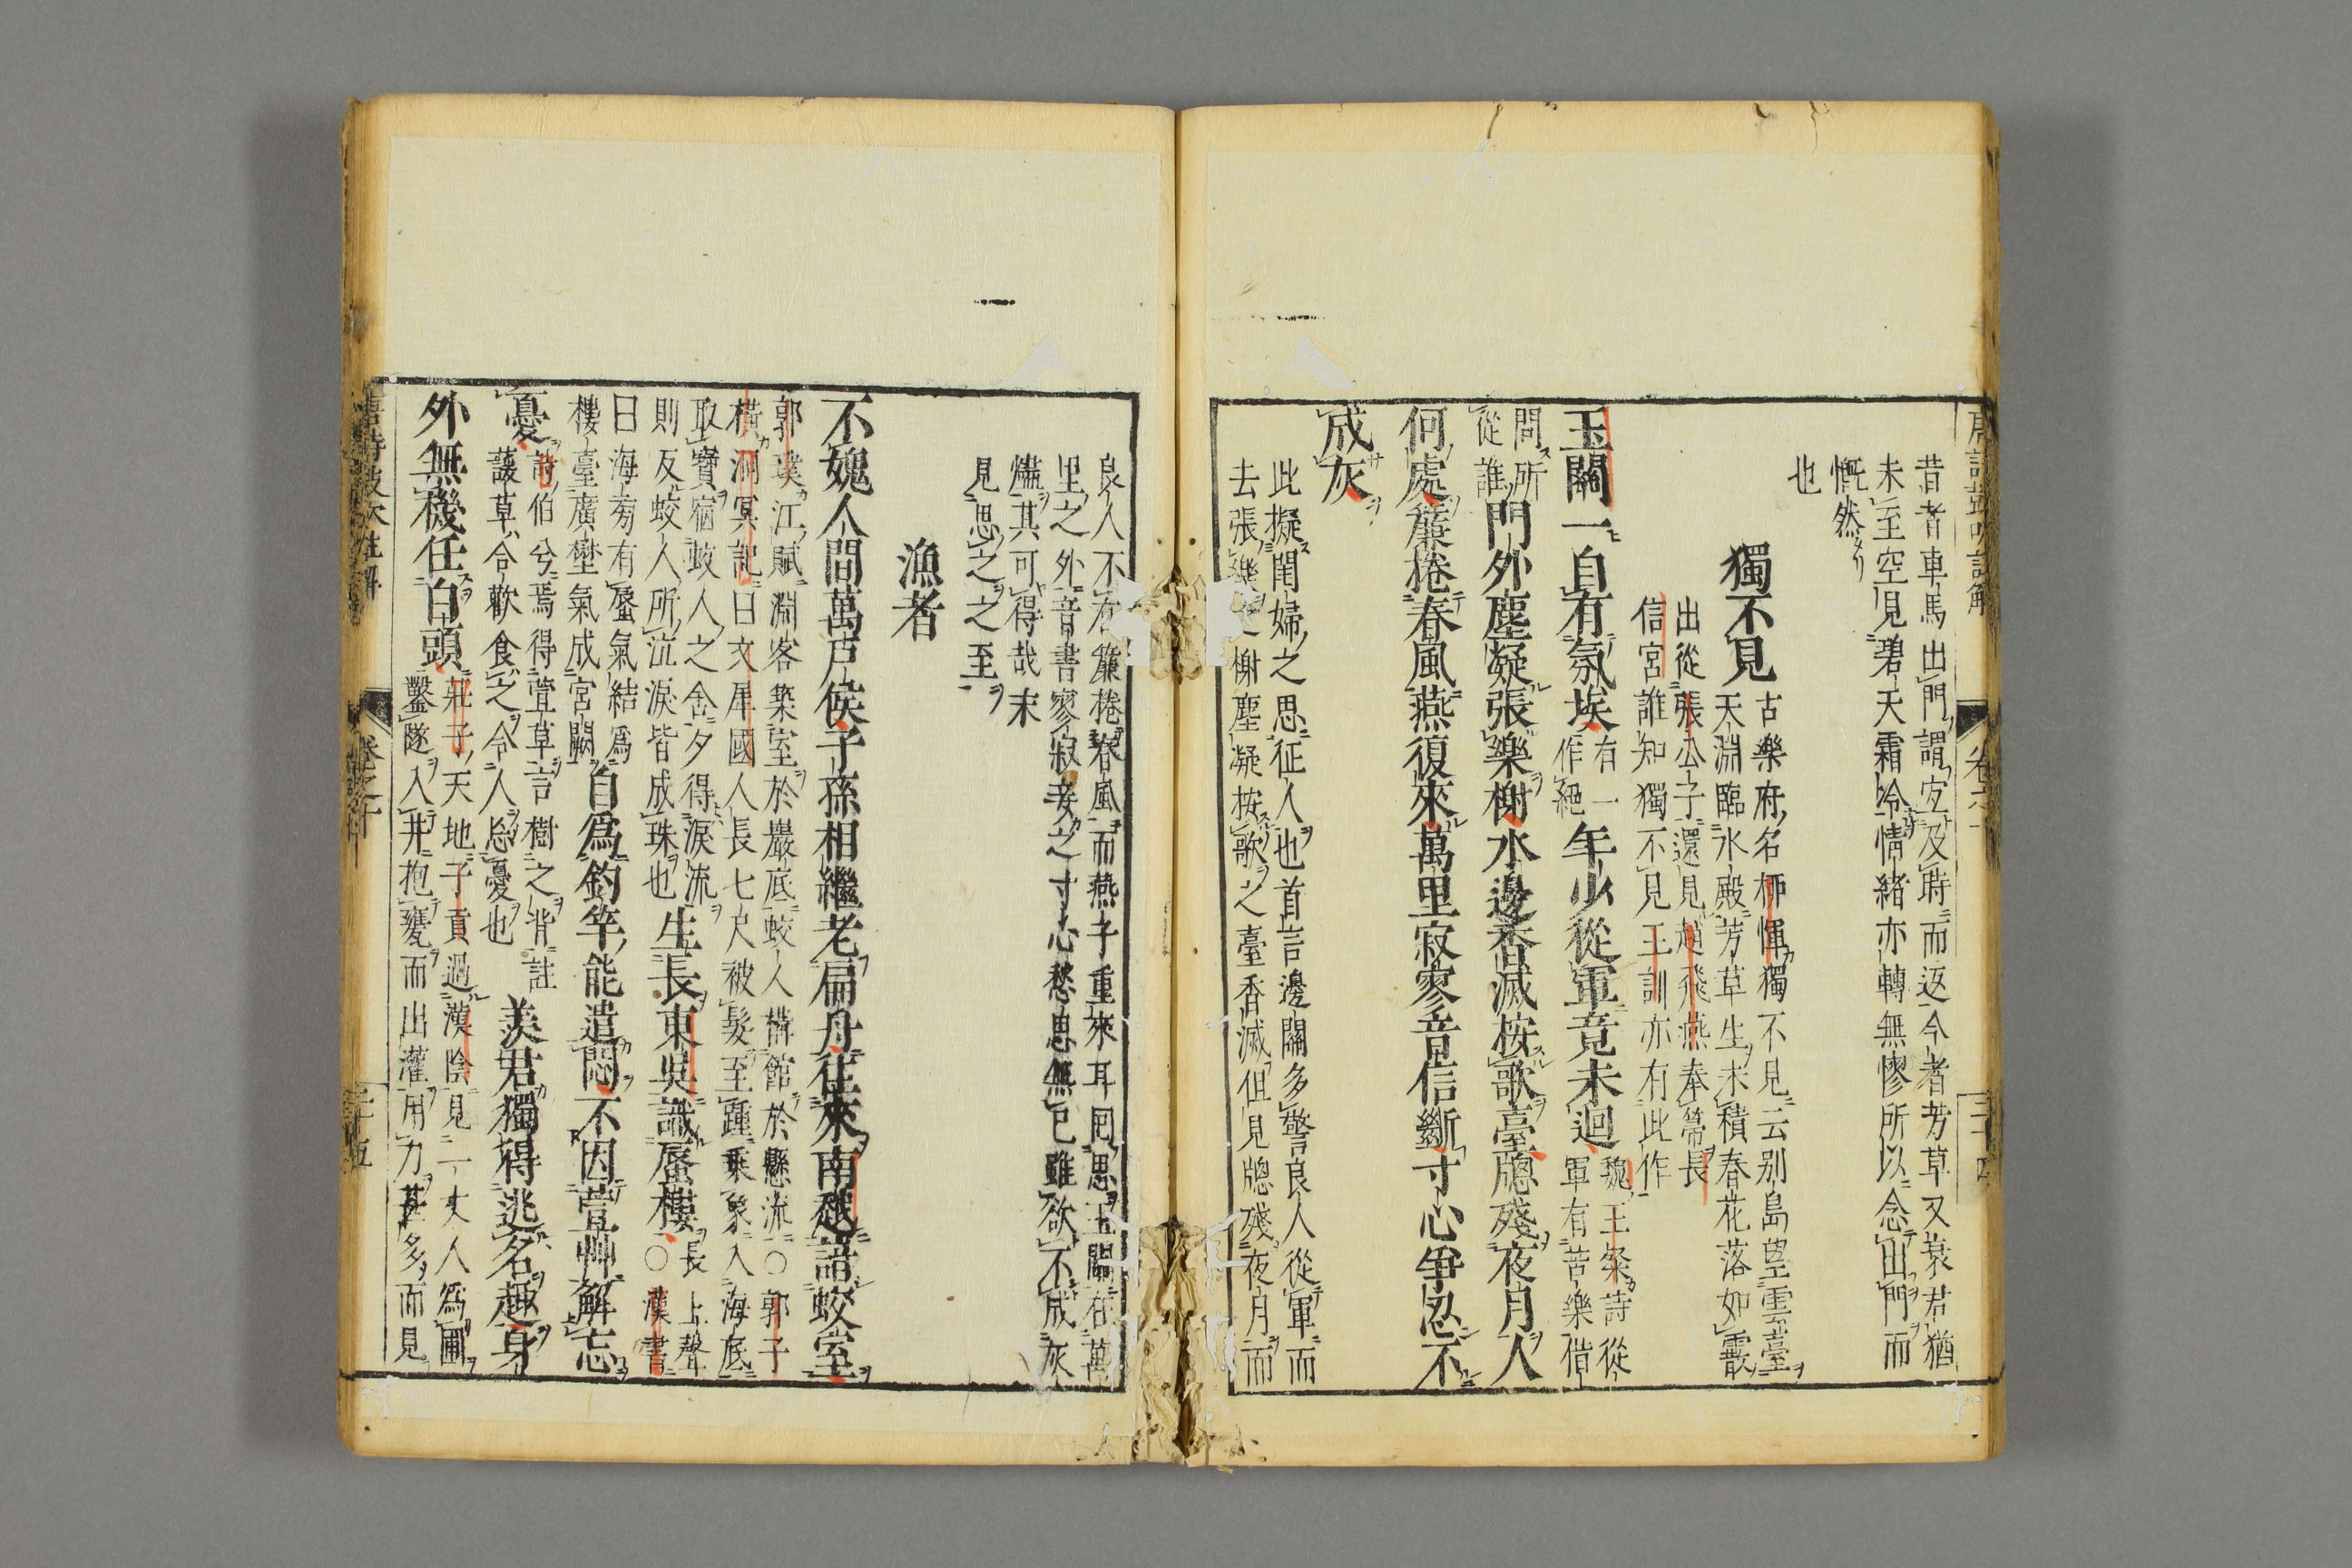 昔者車馬出門謂宜及時而返今者芳草又衰君猶
未至空見碧天霜冷情緒亦轉無憀所以念出門而
慨然
也
獨不見
古樂府名柳惲獨不見云别島望雲臺
天淵臨水殿芳草生未積春花落如霰
出從張公子還見趙飛燕奉箒長
信宮誰知獨不見王訓亦有此作
玉關一自有氛埃
有一
作絕
年少從軍竟未迴
魏王粲詩從
軍有苦樂借
問所
從誰
門外塵凝張樂榭水邊香滅按歌臺牕殘夜月人
何處簾捲春風燕復來萬里寂寥音信斷寸心爭忍不
成灰
此擬閨婦之思征人也首言邊關多警良人從軍而
去張樂之榭塵凝按歌之臺香滅但見牕殘夜月而
卷之十
三十四
良人不在簾捲春風而燕子重來耳因思玉關在萬
里之外音書寥寂妾之寸心愁思無已雖欲不成灰
燼其可得哉末
見思之之至
漁者
不媿人間萬户侯子孫相繼老扁舟往來南越諳蛟室
郭璞江賦淵客築室於巖底蛟人構館於懸流〇郭子
橫洞冥記曰文犀國人長七尺被髮至踵乘象入海底
取寶宿蛟人之舍夕得淚流
則反蛟人所泣淚皆成珠也
生長東吳識蜃樓
長上聲
〇漢書
曰海旁有蜃氣結爲
樓臺廣埜氣成宮闕
自爲釣竿能遣悶不因萱艸解忘
憂
詩伯兮焉得萱草言樹之背註
諼草合歡食之令人忘憂也
羨君獨得逃名趣身
外無機任白頭
莊子天地子貢過漢陰見一丈人爲圃
鑿隧入井抱甕而出灌用力甚多而見
唐詩鼓吹註解
卷之十
三十五